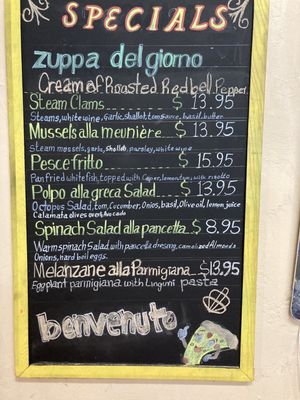 SPECIALS
zuppa del giorno
Cream of Roasted Red bell Pepper
Steam Clams $ 13.95
Steams, white wine, Garlic, shallot, tom sauce, basil, butter
Mussels alla meunière $ 13.95
Steam mussels, garlic, Shallot, parsley, white wine
Pesce fritto $ 15.95
Pan fried white fish, topped with Caper, lemon, with risotto
Polpo alla greca Salad $ 13.95
Octopus Salad, tom, Cucumber, Onios, basil, Olive oil, lemon juice
Calamata olives over Avocado
Spinach Salad alla pancetta $ 8.95
Warm spinach Salad with pancetta dressing, Almonds
Onions, hard boil eggs.
Melanzane alla Parmigiana $13.95
Eggplant parmigiana with Linguini pasta
benvenuto